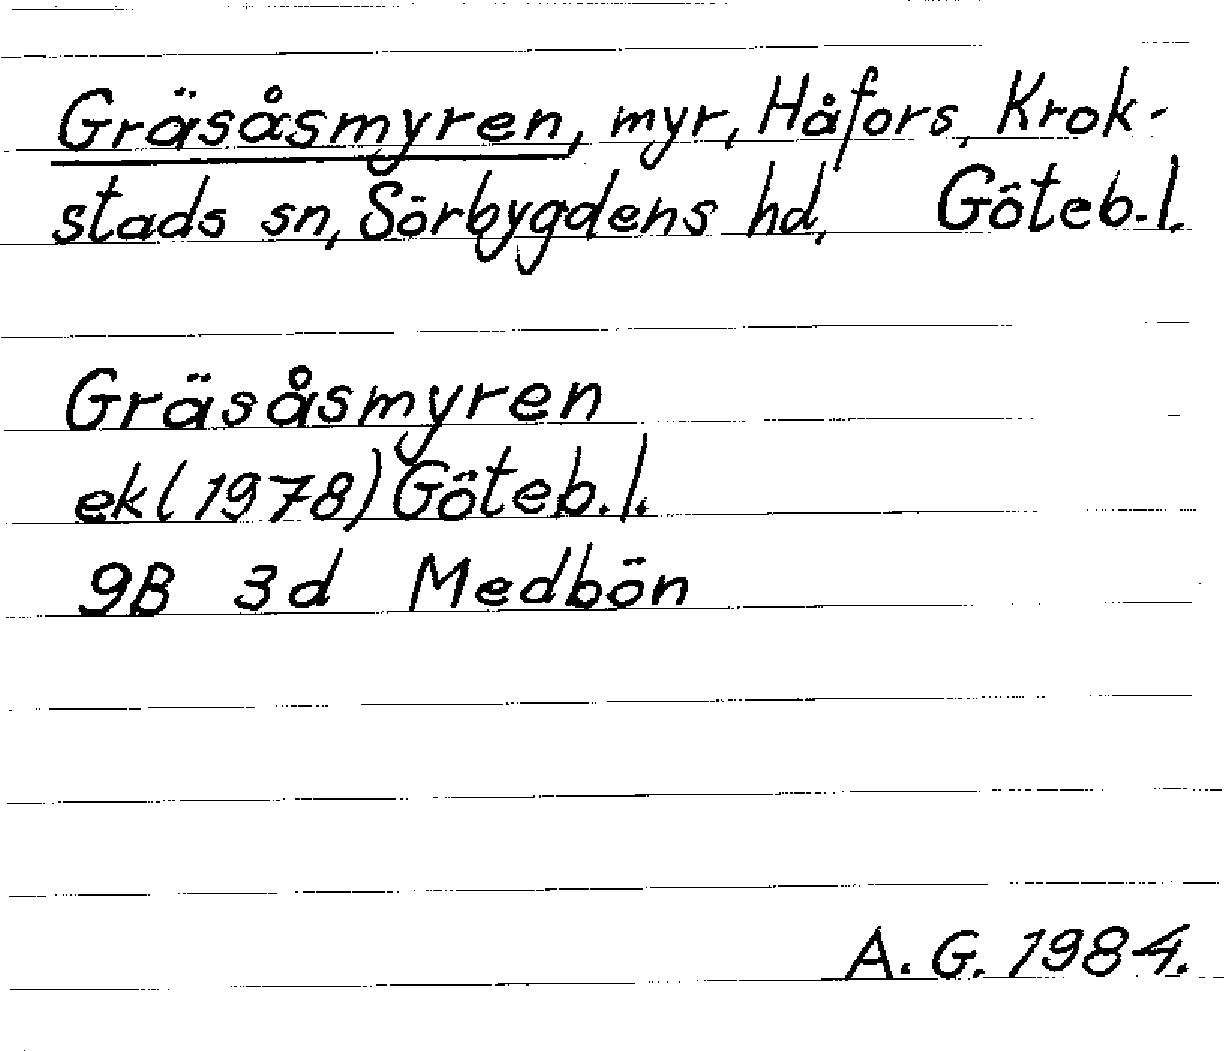 Gräsåsmyren, myr, Håfors, Krok-
stads sn, Sörbygdens hd, Göteb.l.
Gräsåsmyren
ekl (1978) Göteb.l.
9B 3d Medbön
A. G. 1984.